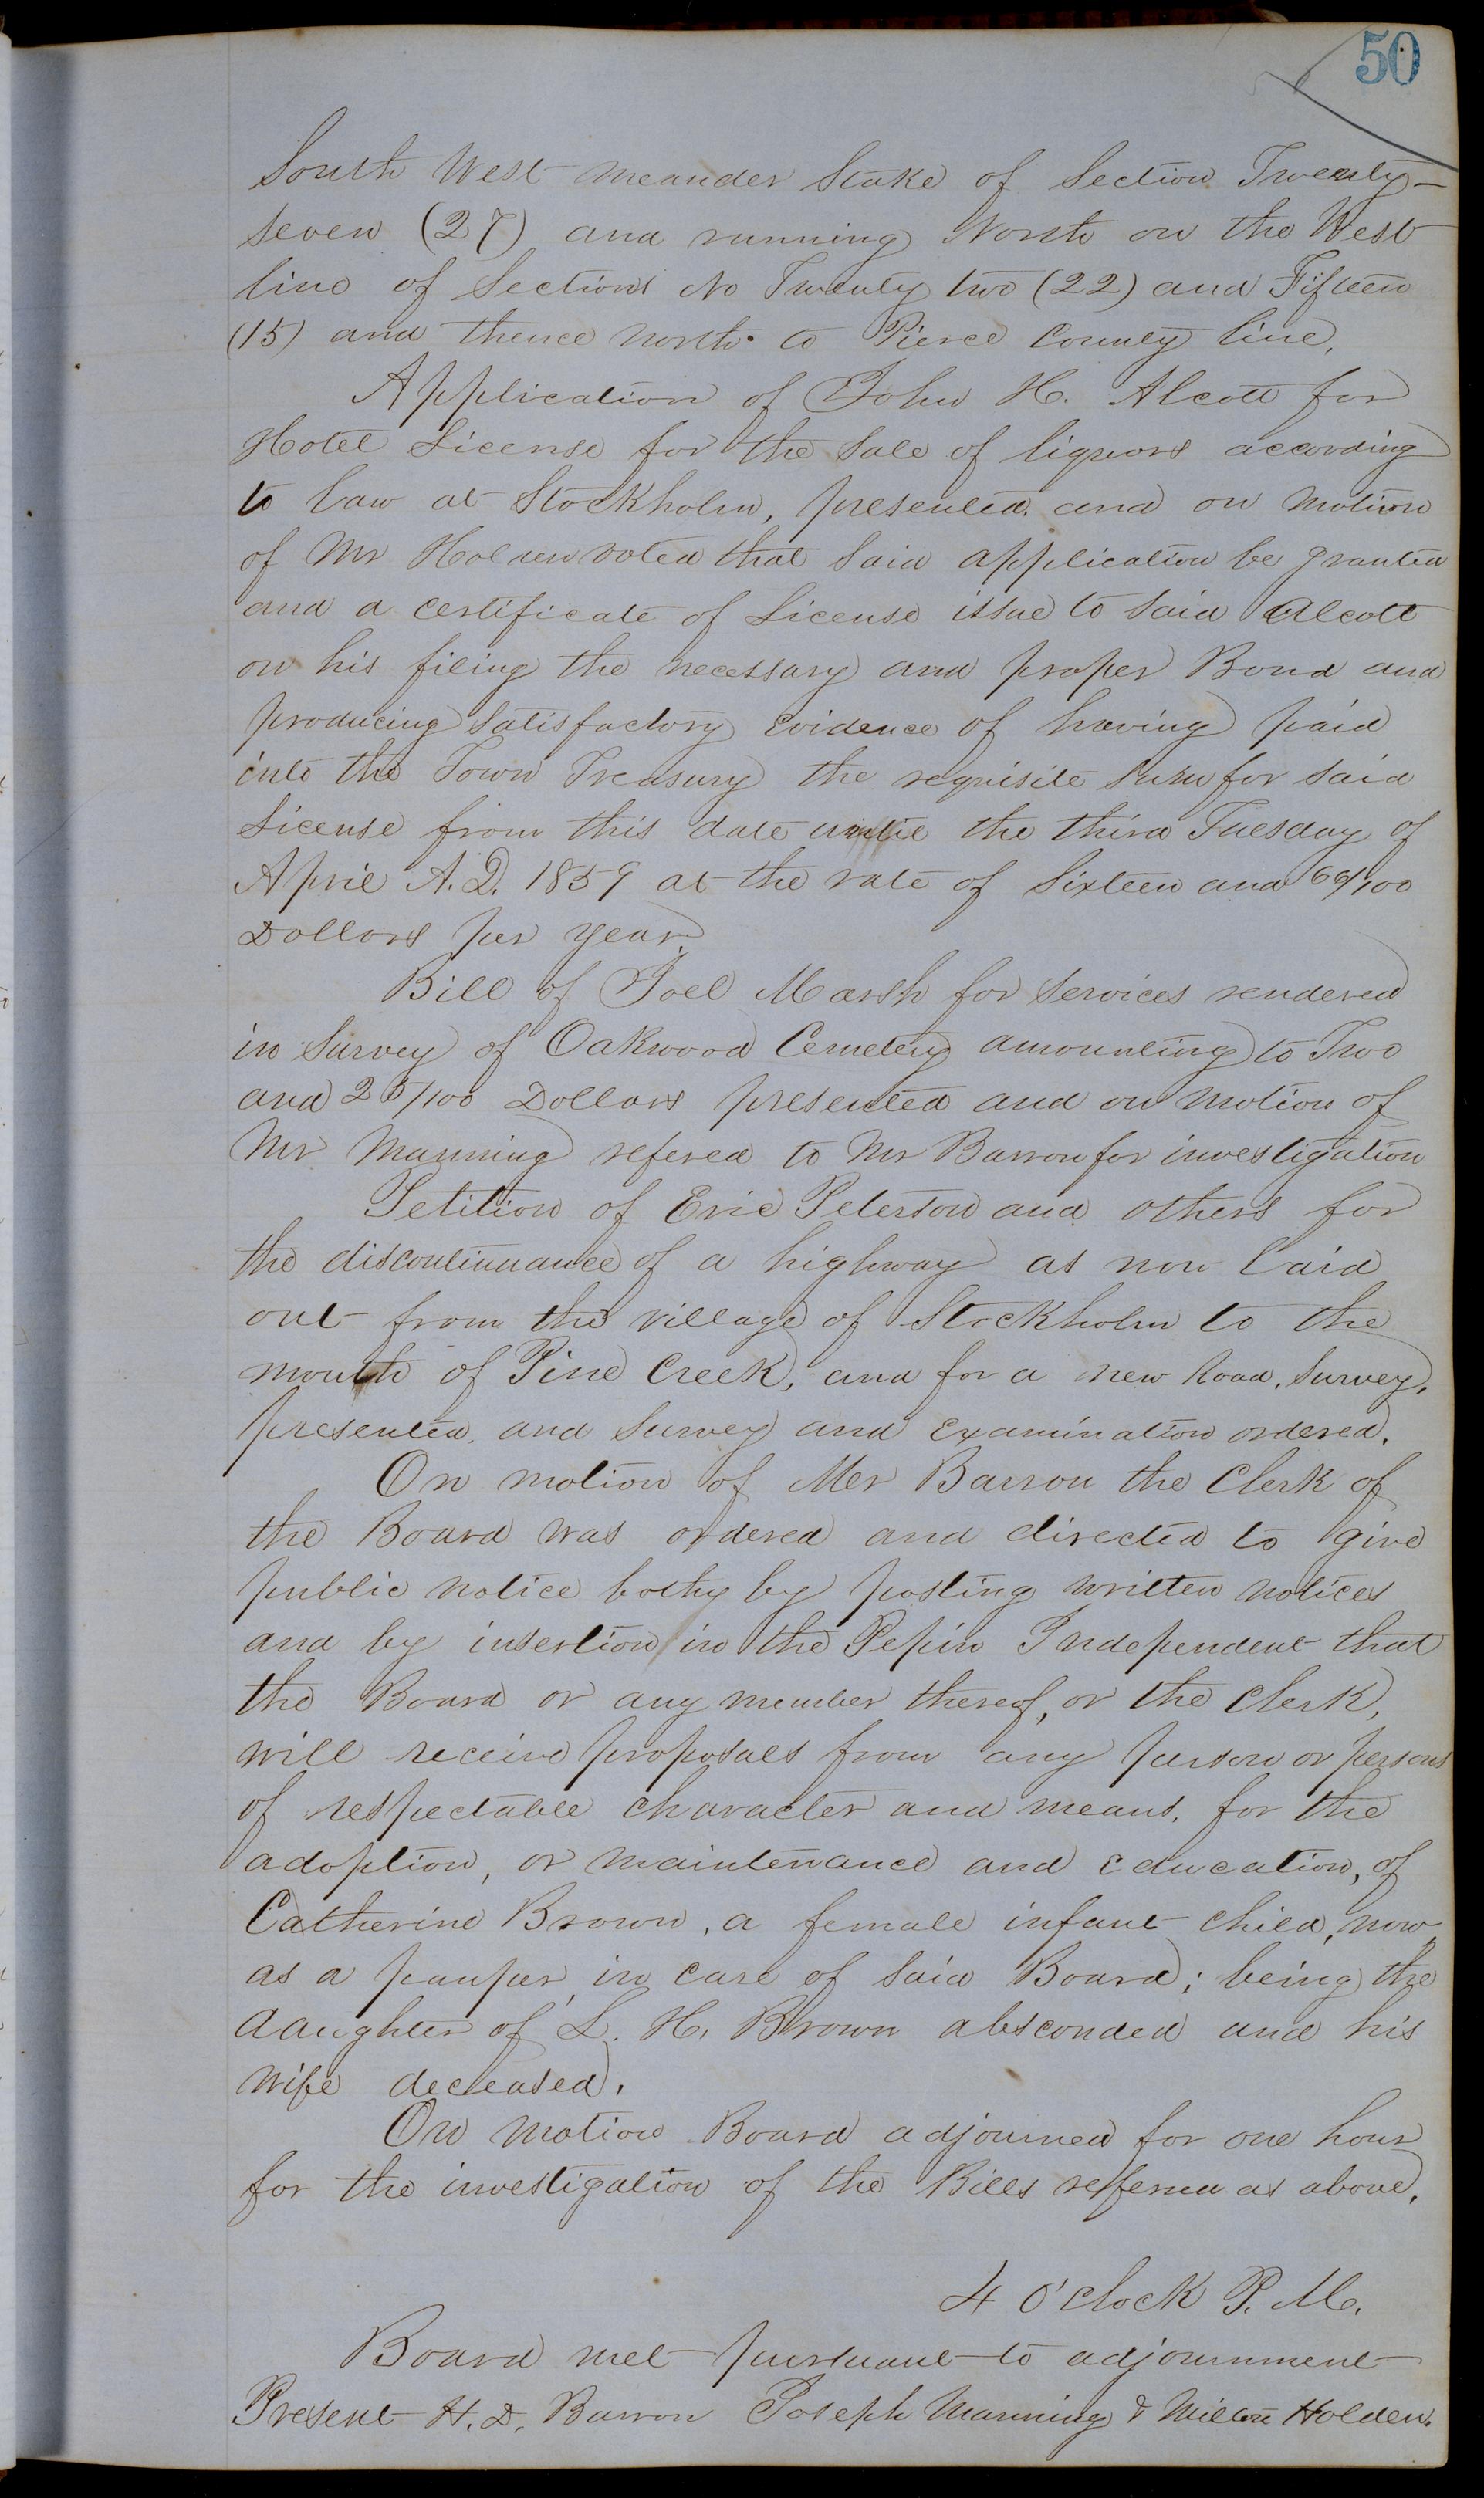 50
South West meander Stake of Section Twenty-
seven (27) and running North on the West
line of Sections No Twenty two (22) and Fifteen
(15) and thence north to Pierce County line,
Application of John H. Alcott for
Hotel License for the Sale of liquors according
to law at Stockholm, presented. and on motion
of Mr Holden voted that Said application be granted
and a certificate of License issue to Said Alcott
on his filing the necessary and proper Bond and
producing Satisfactory Evidence of having paid
into the Town Treasury the requisite Sum for Said
License from this date until the third Tuesday of
April A.D. 1859 at the rate of Sixteen and 66/100
Dollars per year.
Bill of Joel Marsh for Services rendered
in Survey of Oakwood Cemetery amounting to Two
and 25/100 Dollars presented and on motion of
Mr Manning refered to Mr Barron for investigation
Petition of Eric Peterson and others for
the discontinuance of a highway as now laid
out from the village of Stockholm to the
mouth of Pine Creek, and for a new Road, Survey,
presented, and Survey and Examination ordered.
On motion of Mr Barron the Clerk of
the Board was ordered and directed to give
public notice both by posting written notices
and by insertion in the Pepin Independent that
the Board or any member thereof, or the Clerk,
will receive proposals from any person or persons
of respectable character and means, for the
adoption, or maintenance and education, of
Catherine Brown, a female infant child, now
as a pauper, in care of Said Board; being the
daughter of L. H. Brown absconded and his
wife deceased.
On motion Board adjourned for one hour
for the investigation of the Bills referred as above.
4 O'clock P. M.
Board met pursuant to adjournment
Present H. D. Barron Joseph Manning & Milton Holden.